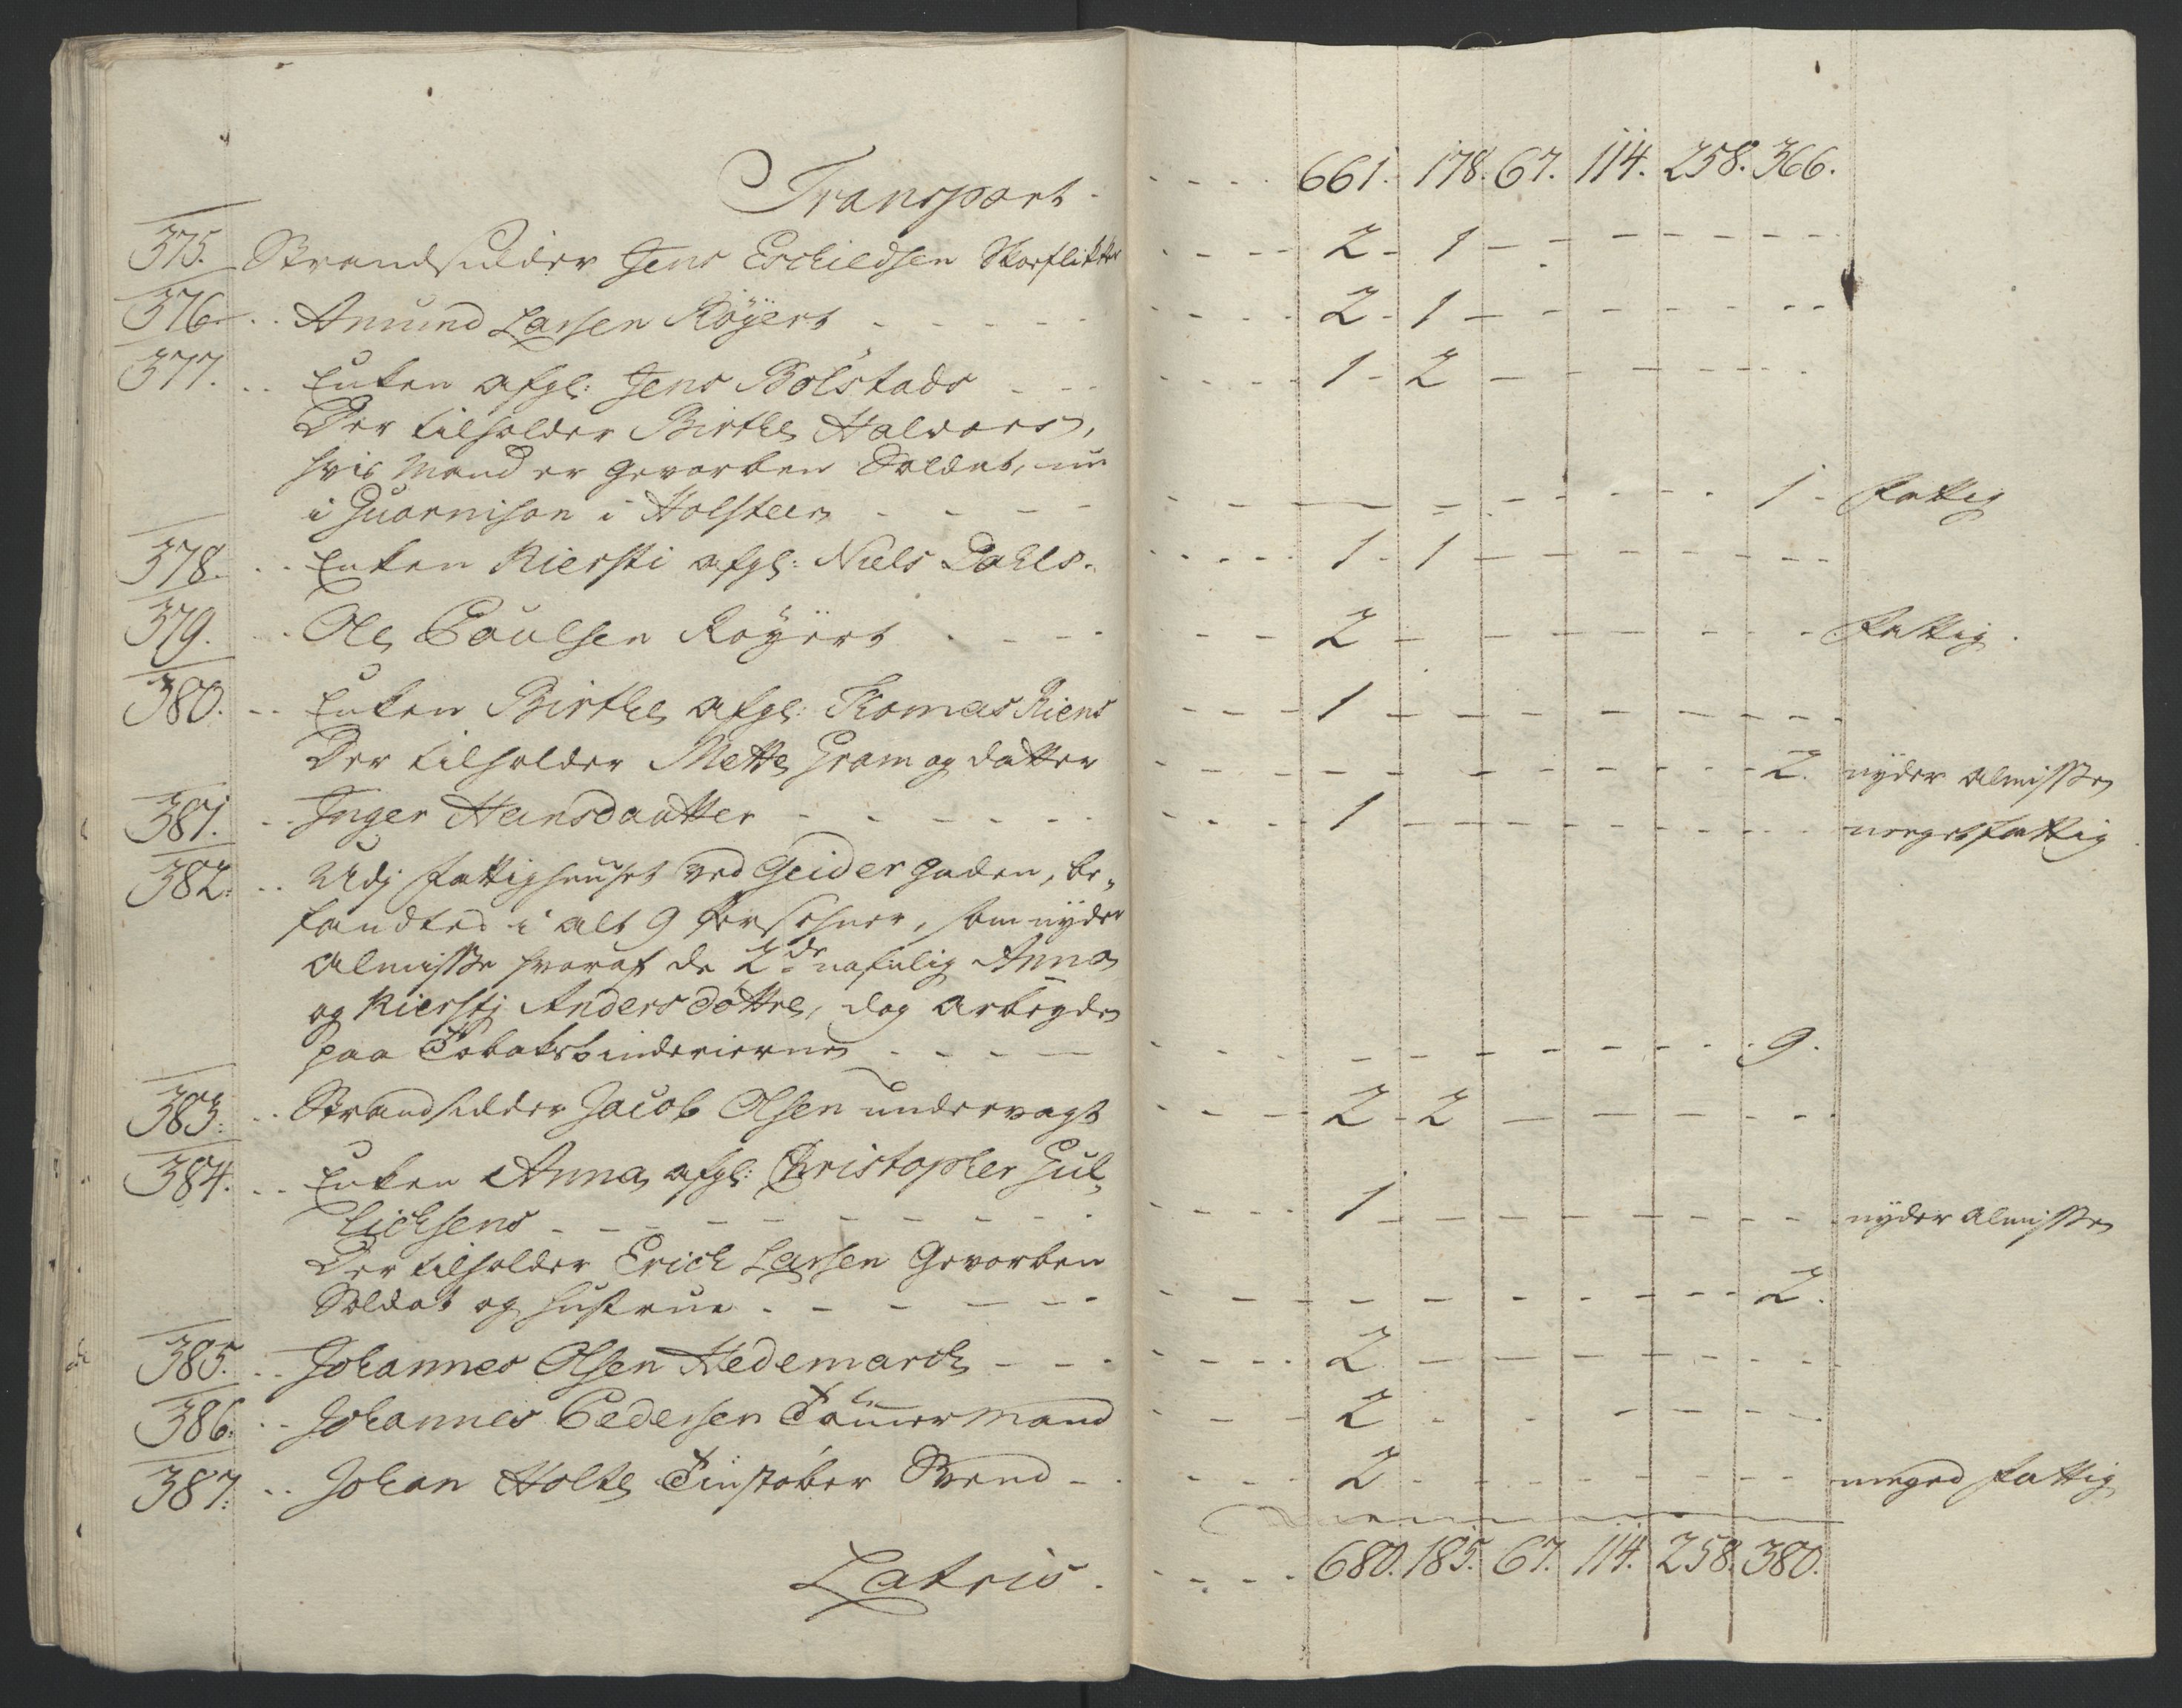 Transport - - - - - 661. 178. 67. 114. 258. 366.
375. Strandsidder Jens Eschildsen Skoeflikker - - - - 2 - 1 - - - - - - -
376. .. Amund Larsen Röyert - - - - - 2 - 1 - - - - - - -
377. .. Enken afgl: Jens Bolstads - - - - 1 - 2 - - - - - -
Der tilholder Birthe Halvors,
hvis Mand er gevorben Soldat, nu
i Guarnison i Holsteen - - - - 1 - fattig
378. .. Enken Kiersti afgl: Niels Dahls. - - - 1 - 1 - - - - - -
379. .. Ole Poulsen Röyert - - - - 2 - - - - - - fattig.
380. .. Enken Birthe afgl: Thomas Riens - - - 1 - - - - - - -
Der tilholder Mette Gram og datter - - - - - - 2. nyder almisse
381. .. Inger Hansdaatter - - - - - 1 - - - - - - meget fattig
382. .. Udj fattighuuset ved Geidergaden, be„
fandtes i alt 9 Persohner, som nyder
almisse hvoraf de 2de nafnlig Anna
og Kierstj Andersdöttre, dog arbeyder
paa Tobaksbinderierne - - - - - - 9.
383. .. Strandsidder Jacob Olsen undervagt - - - 2 - 2 - - - - -
384. .. Enken Anna afgl: Christopher Gul„
lichsens - - - - - 1 - - - - - - nyder almisse
Der tilholder Erich Larsen Gevorben
Soldat og hustrue - - - - - - 2.
385. .. Johannes Olsen Hedemarch - - - - 2 - - - - - -
386. .. Johannes Pedersen Tömmermand - - - 2 - - - - - -
387. .. Johan Holte Tinstöber Svend - - - 2 - - - - - - meged fattig
Latris. - - - - 680. 185. 67. 114. 258. 380.